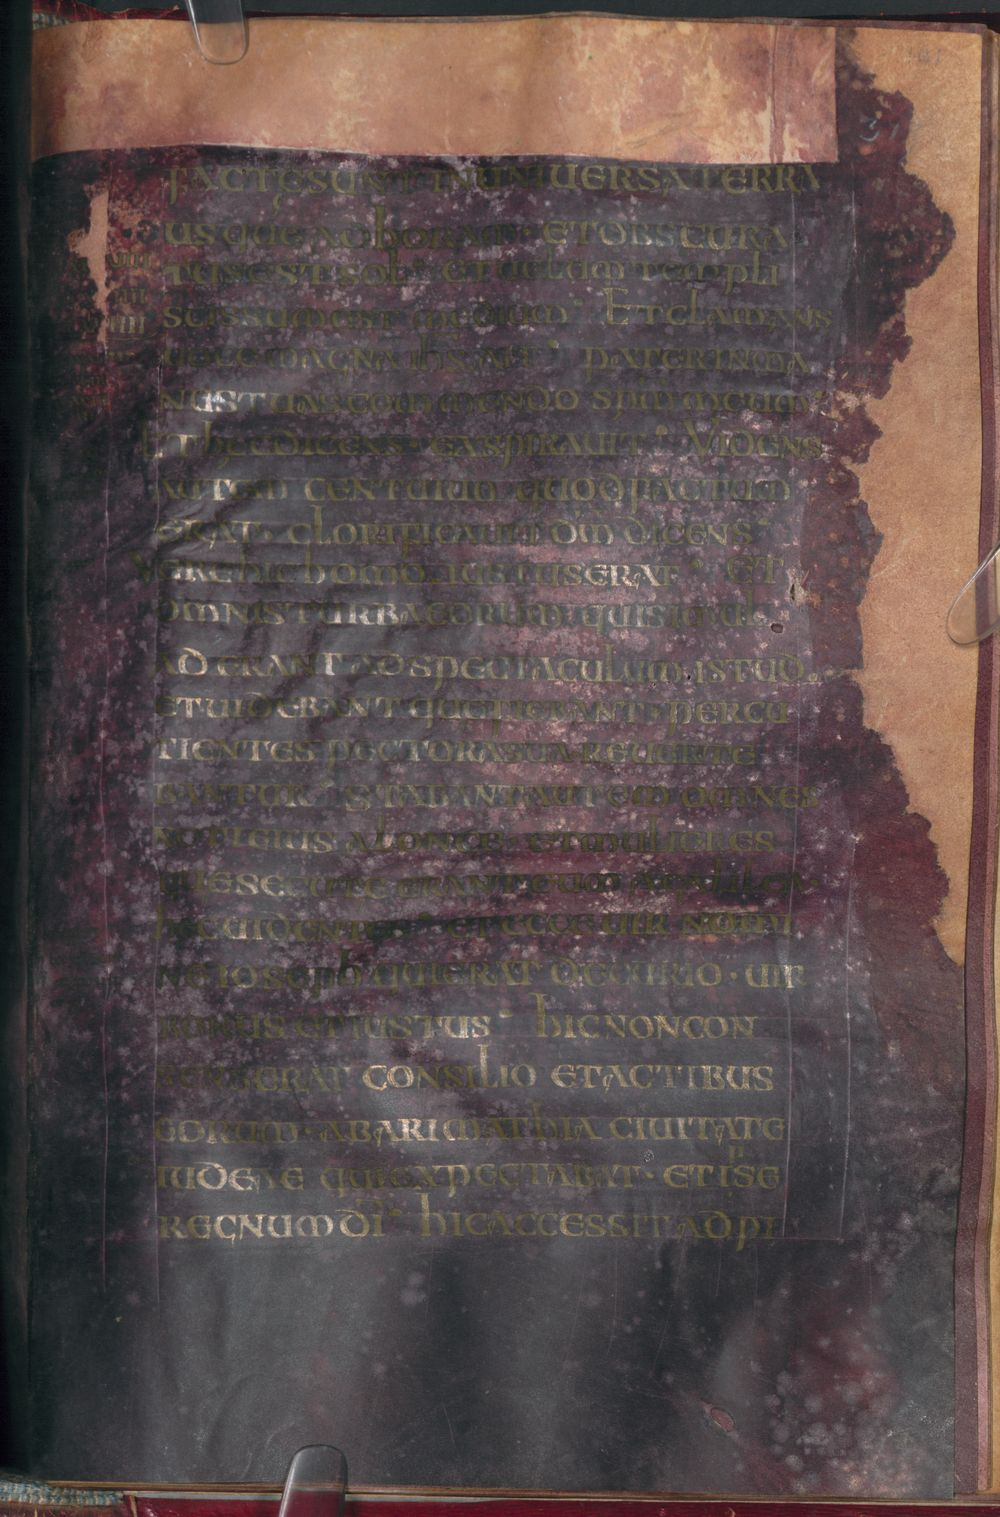 FACTESUNT IN UNIUERSA TERRA
USQUE AD HORAM · ET OBSCURA
TUS EST SOL · ET UELUM TEMPLI
SCISSUM EST MEDIUM · ET CLAMANS
UOCE MAGNA IHS AIT · PATER IN MA
NUS TUAS COMMENDO SPM MEUM ·
ET HEC DICENS · EXSPIRAUIT · VIDENS
AUTEM CENTURIO QUOD FACTUM
ERAT · GLORIFICAUIT DM DICENS ·
VERE HIC HOMO IUSTUS ERAT · ET
OMNIS TURBA EORUM QUI SIMUL
AD ERANT AD SPECTACULUM ISTUD ·
ET UIDEBANT QUE FIEBANT · PERCU
TIENTES PECTORA SUA REUERTE
BANTUR · STABANT AUTEM OMNES
NOTI EIUS A LONGE · ET MULIERES
QUE SECUTE ERANT EUM A GALILEA ·
HEC UIDENTES · ET ECCE UIR NOMI
NE IOSEPH QUI ERAT DECURIO · UIR
BONUS ET IUSTUS · HIC NON CON
SENSERAT CONSILIO ET ACTIBUS
EORUM · AB ARIMATHIA CIUITATE
IUDEAE QUI EXPECTABAT · ET IPSE
REGNUM DI · HIC ACCESSIT AD PI